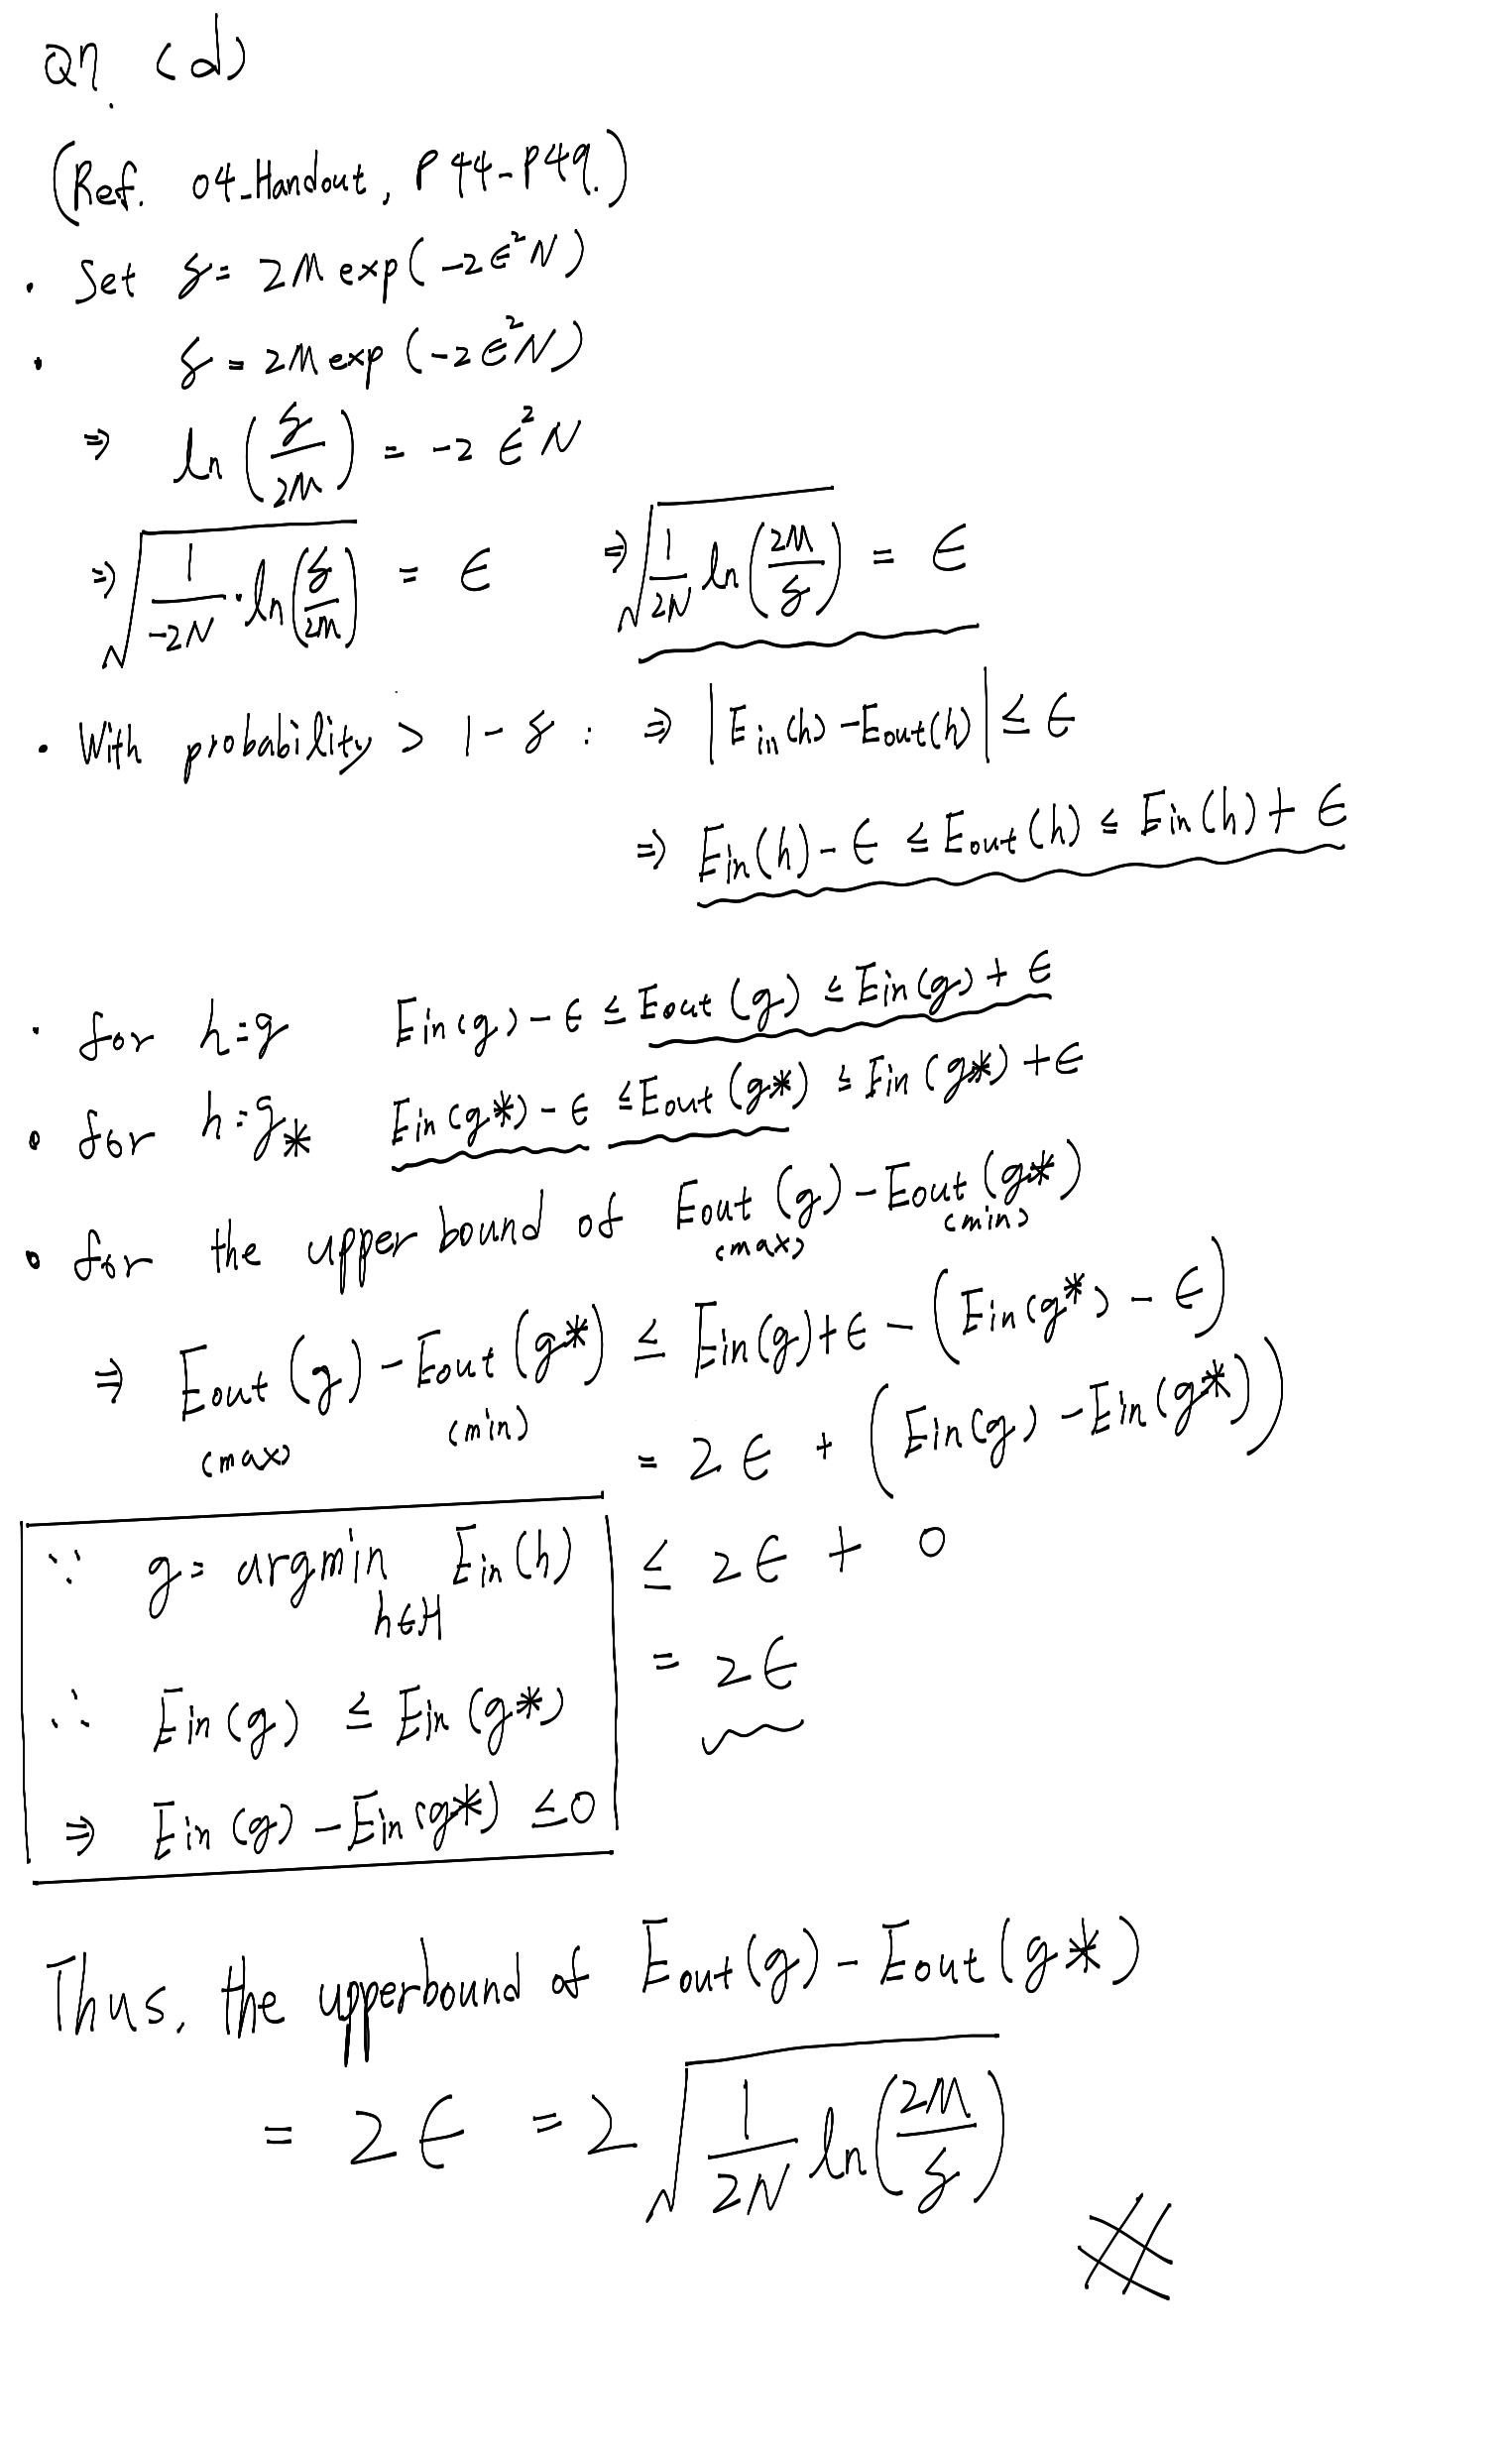 Q7. (d)
(Ref. 04-Handout, P44-P49.)
· Set δ = 2M exp(-2ϵ²N)
· δ = 2M exp(-2ϵ²N)
⇒ ln(δ/2M) = -2ϵ²N
⇒ √(1/(-2N) · ln(δ/2M)) = ϵ ⇒ √(1/(2N) ln(2M/δ)) = ϵ
· With probability > 1-δ : ⇒ |Ein(h) - Eout(h)| ≤ ϵ
⇒ Ein(h) - ϵ ≤ Eout(h) ≤ Ein(h) + ϵ
· for h=g Ein(g) - ϵ ≤ Eout(g) ≤ Ein(g) + ϵ
· for h=g* Ein(g*) - ϵ ≤ Eout(g*) ≤ Ein(g*) + ϵ
· for the upper bound of Eout(g) - Eout(g*)
(max) (min)
⇒ Eout(g) - Eout(g*) ≤ Ein(g) + ϵ - (Ein(g*) - ϵ)
(max) (min)
= 2ϵ + (Ein(g) - Ein(g*))
∵ g = argmin Ein(h)
h∈H
∴ Ein(g) ≤ Ein(g*)
⇒ Ein(g) - Ein(g*) ≤ 0
≤ 2ϵ + 0
= 2ϵ
Thus, the upperbound of Eout(g) - Eout(g*)
= 2ϵ = 2√(1/(2N) ln(2M/δ))
#